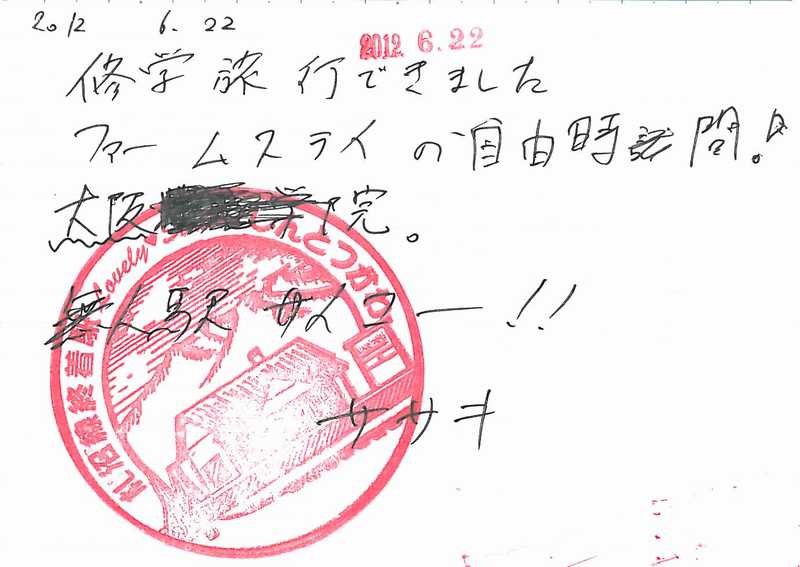 2012 6. 22
2012. 6. 22
修学旅行できました
ファームステイの自由時 間!
大阪 学院。
無人駅 サイコー!!
ササキ
Lovely しんとつかわ
札沼線終着駅